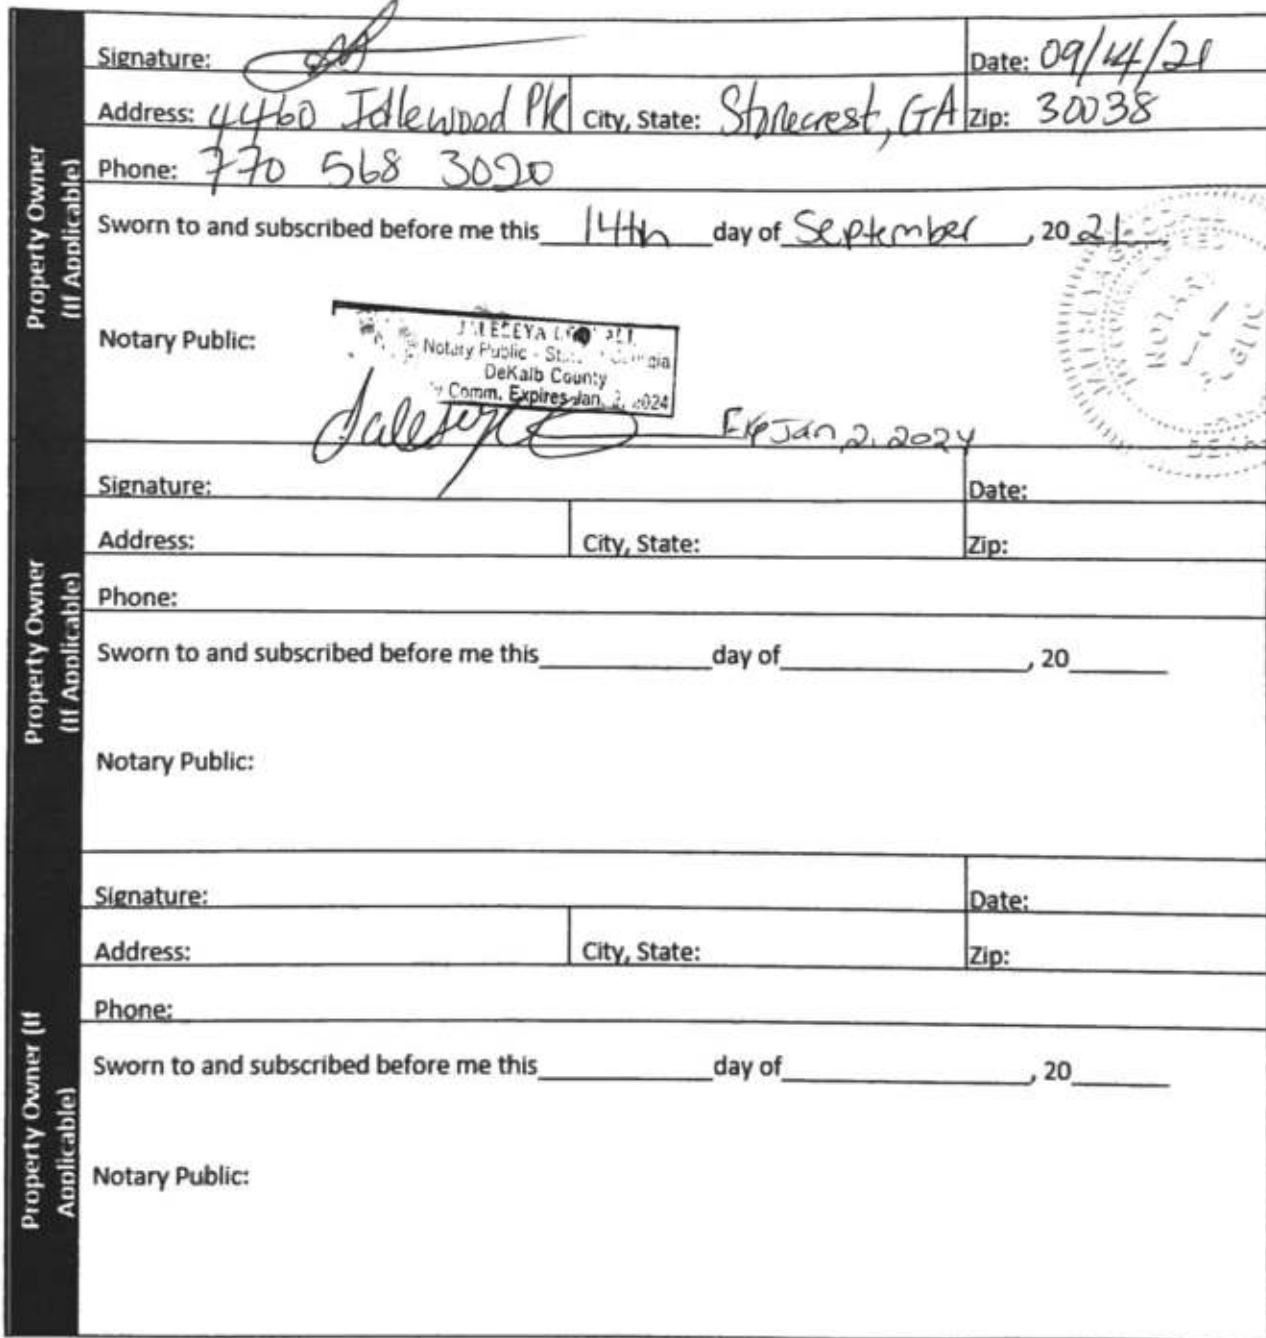 Property Owner
(If Applicable)
Signature:
Date: 09/14/21
Address: 4460 Idlewood Pk City, State: Stonecrest, GA Zip: 30038
Phone: 770 568 3020
Sworn to and subscribed before me this 14th day of September, 2021
Notary Public:
Notary Public - State Georgia
DeKalb County
Comm. Expires Jan. 2, 2024
Exp Jan, 2, 2024
NOTARY
PUBLIC
Property Owner
(If Applicable)
Signature: Date:
Address: City, State: Zip:
Phone:
Sworn to and subscribed before me this day of , 20
Notary Public:
Property Owner (If
Applicable)
Signature: Date:
Address: City, State: Zip:
Phone:
Sworn to and subscribed before me this day of , 20
Notary Public: